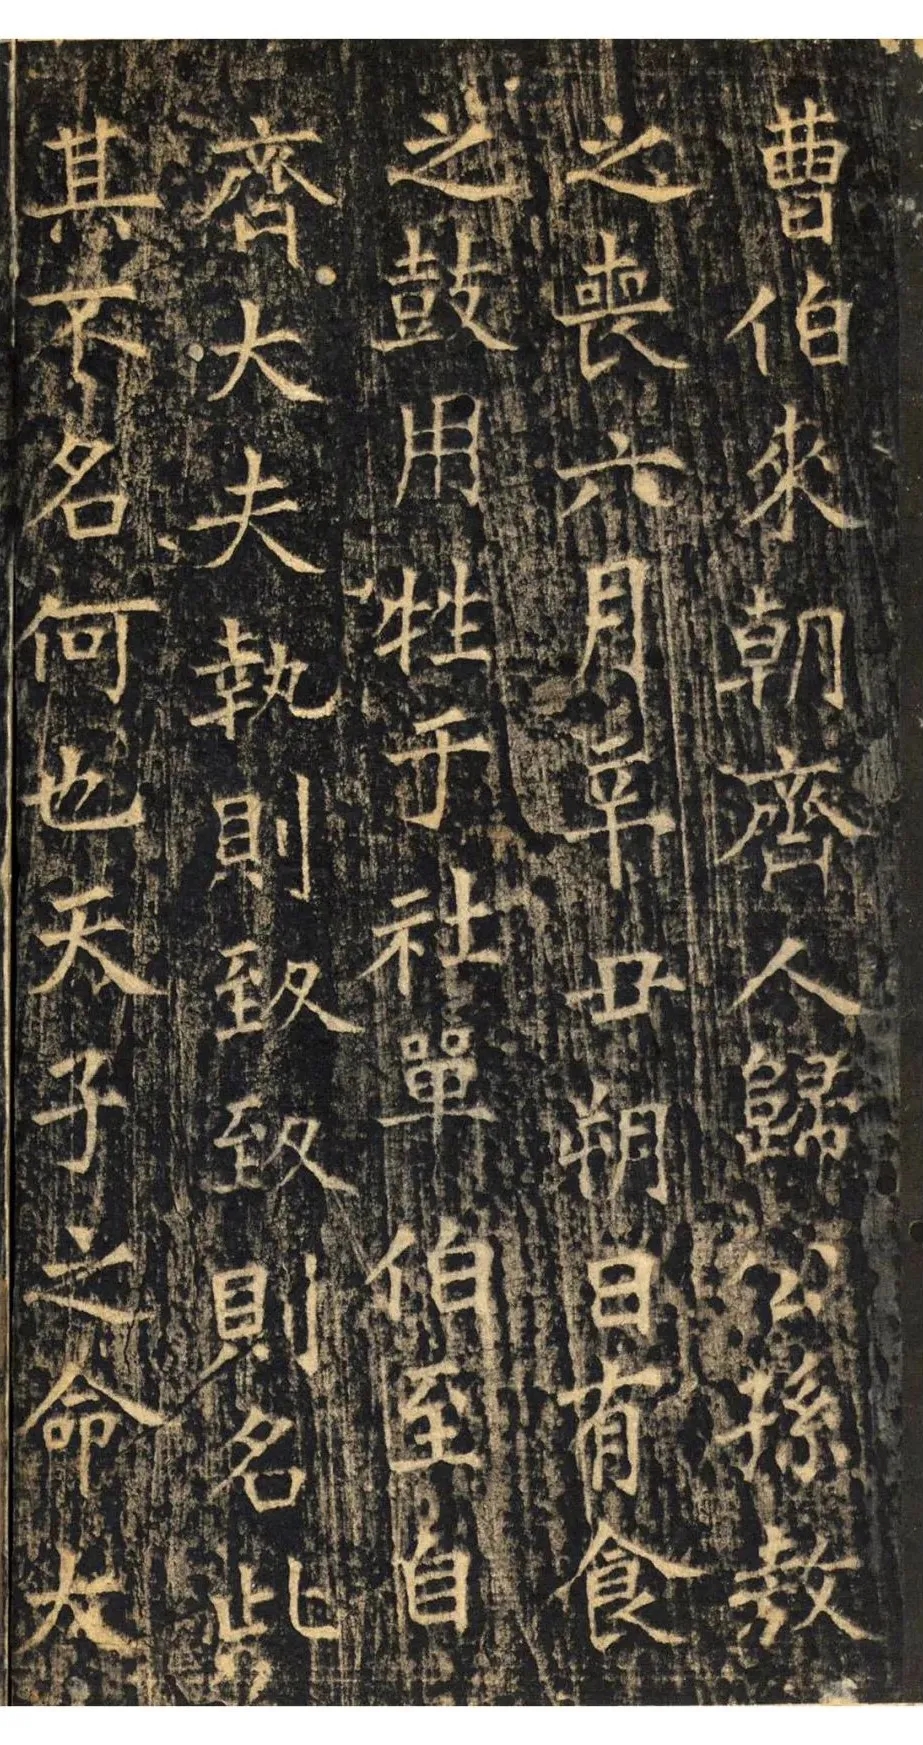 曹伯來朝齊人歸公孫敖
之喪六月辛丑朔日有食
之鼓用牲于社單伯至自
齊大夫執則致致則名此
其不名何也天子之命大